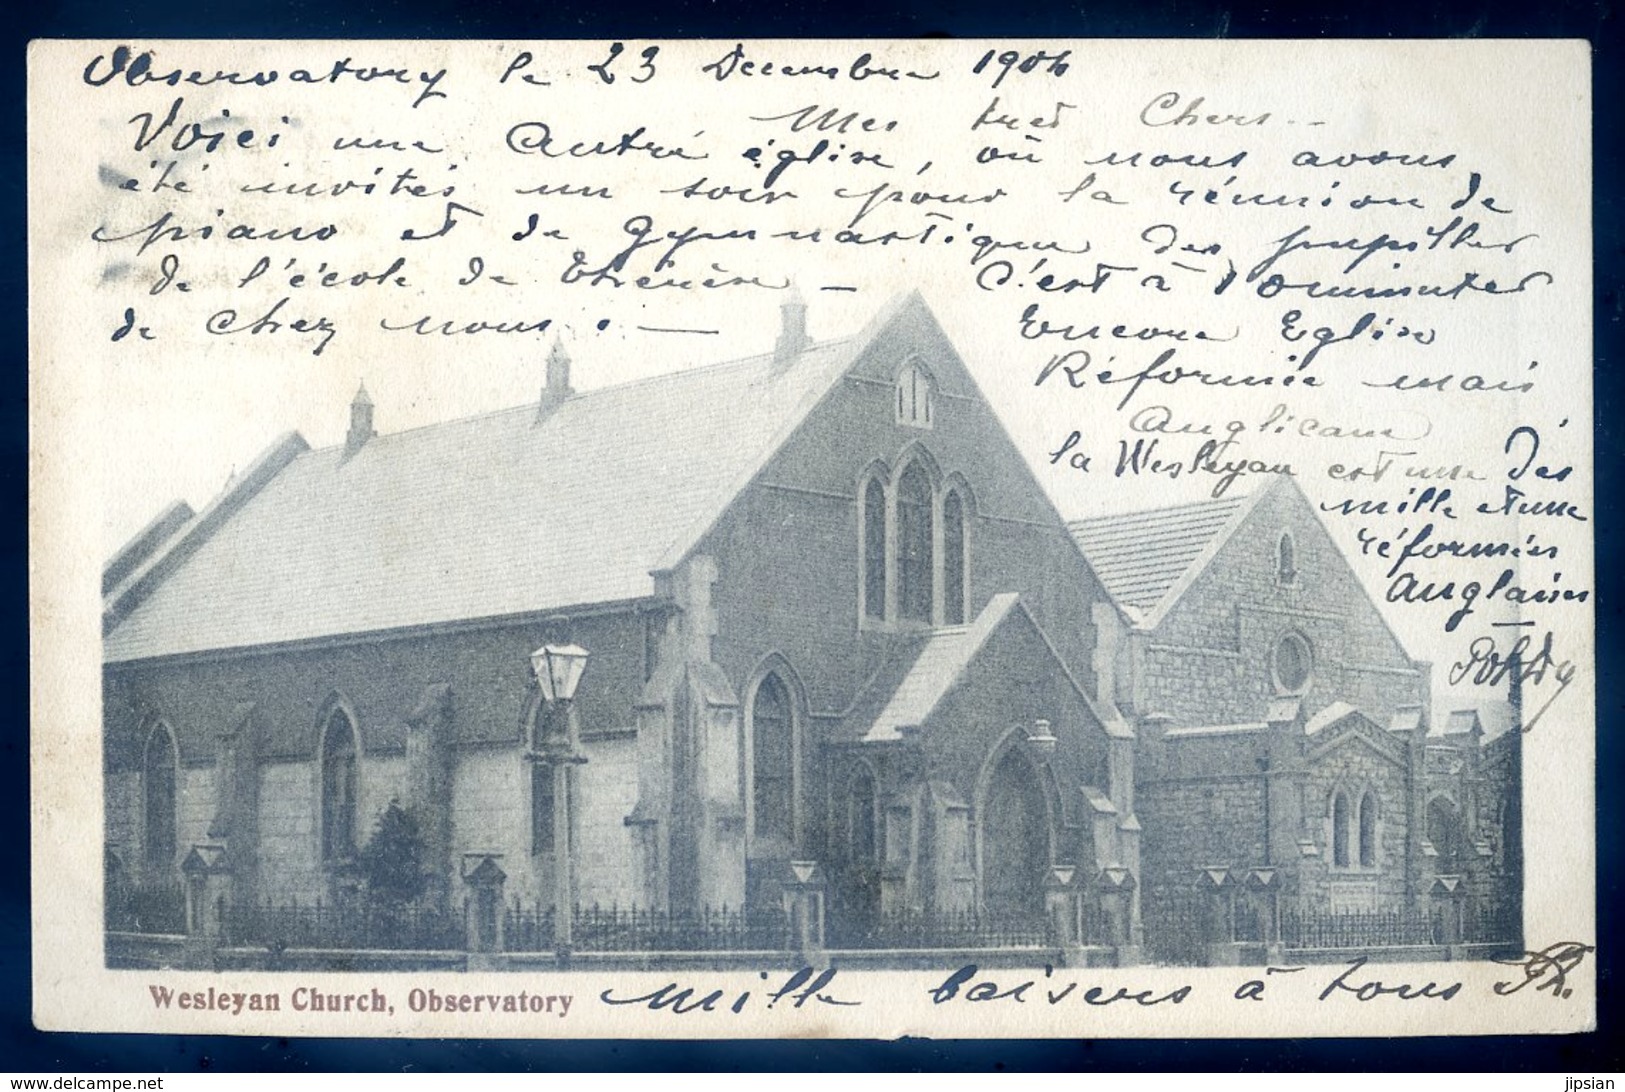 Observatory le 23 Decembre 1904
Mes tres Chers --
Voici une Autre église, où nous avons
été invités un soir pour la réunion de
piano et de Gymnastique des pupilles
de l'école de Thérèse — C'est à 10 minutes
de chez nous. —
Encore Eglise
Réformée mais
Anglicane
la Wesleyan est une des
mille et une
réformées
Anglaises
—
Wesleyan Church, Observatory
Mille baisers à tous Th.
delcampe.net
jipsian